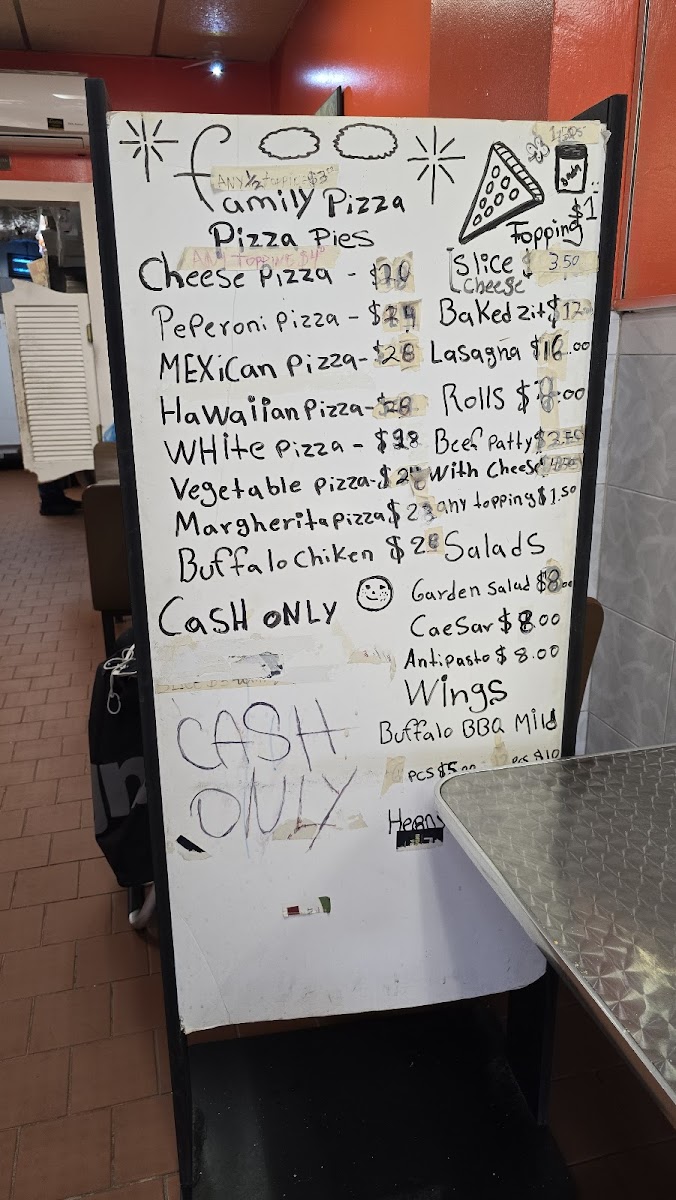 ANY ½ TOPPING $3
Family Pizza
Pizza Pies
ANY TOPPING $4
Cheese Pizza - $20
PePeroni Pizza - $24
MEXiCan Pizza- $28
HaWaiian Pizza- $28
WHite Pizza - $28
Vegetable Pizza- $2
Margherita Pizza $2
Buffalo Chiken $28
CasH ONLY
CASH
ONLY
Topping $1
Slice $ 3.50
Cheese
Baked ziti $12
Lasagna $16.00
Rolls $ .00
Beef Patty
With Cheese
any topping $1.50
Salads
Garden Salad $8.00
CaeSar $8.00
Antipasto $8.00
Wings
Buffalo BBQ Mild
PCS $5.00 PCS $10